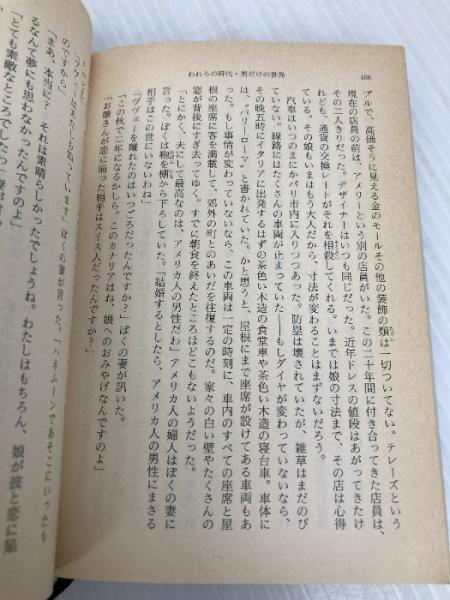 われらの時代・男だけの世界
406
プルで、高価そうに見える金のモールその他の装飾の類は一切ついてない。テレーズという
現在の店員の前は、アメリーという別の店員がいた。この二十年間に付き合ってきた店員は、
その二人きりだった。デザイナーはいつも同じだった。近年ドレスの値段はあがってきたけ
れども、通貨の交換レートがそれを相殺してくれる。いまでは娘の寸法まで、その店は心得
ている。その娘もいまはもう大人だから、寸法が変わることはまずないだろう。
汽車はいつのまにかパリ市内に入りつつあった。防塁は壊されていたが、雑草はまだのび
ていない。線路にはたくさんの車両が止まっていた――もしダイヤが変わっていないなら、
その晩五時にイタリアに出発するはずの茶色い木造の食堂車や茶色い木造の寝台車。車体に
は、〝パリ-ローマ〟と書かれていた。かと思うと、屋根にまで座席が設けてある車両もあ
った。もし事情が変わっていないなら、この車両は一定の時刻に、車内のすべての座席と屋
根の座席に客を満載して、郊外の町とのあいだを往復するのだ。家々の白い壁やたくさんの
窓が背後にすぎ去ってゆく。すでに朝食を終えたところはどこもないようだった。
「とにかく、夫にして最高なのは、アメリカ人の男性だわ」アメリカ人の婦人はぼくの妻に
言った。ぼくは鞄を棚から下ろしていた。「結婚するとしたら、アメリカ人の男性にまさる
相手はこの世にいないわね」
「ヴヴェーを離れたのはいつごろだったんですか?」ぼくの妻が訊いた。
「この秋で二年になるかしら。このカナリアはね、娘へのおみやげなんですのよ」
「お嬢さんが恋に陥った相手はスイス人だったんですか?」
ぼくの妻が言った。「ハネムーンであそこにいったも
のですから」
「まあ、本当に? それは素晴らしかったでしょうね。わたしはもちろん、娘が彼と恋に陥
るなんて夢にも思わなかったんですのよ」
「とても素敵なところでしたわ」妻が